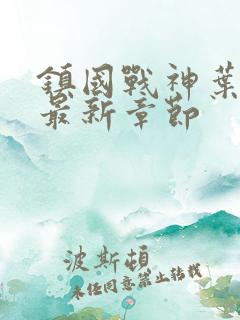 鎮國戰神葉
最新章節
波斯頓
未經同意禁止轉載